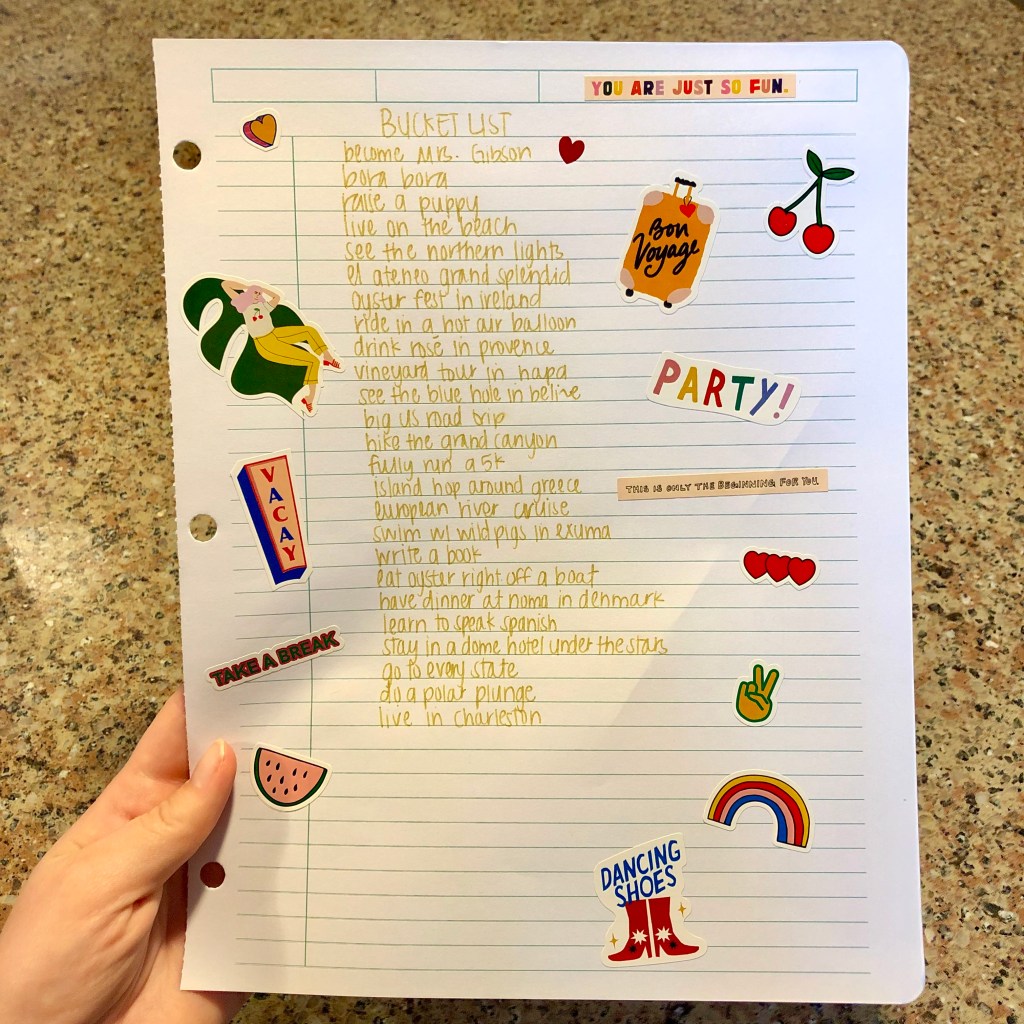 YOU ARE JUST SO FUN.
BUCKET LIST
become Mrs. Gibson
bora bora
raise a puppy
live on the beach
see the northern lights
el ateneo grand splendid
oyster fest in ireland
ride in a hot air balloon
drink rosé in provence
vineyard tour in napa
see the blue hole in belize
big US road trip
hike the grand canyon
fully run a 5k
island hop around greece
european river cruise
swim w/ wild pigs in exuma
write a book
eat oyster right off a boat
have dinner at noma in denmark
learn to speak spanish
stay in a dome hotel under the stars
go to every state
do a polar plunge
live in charleston
Bon
Voyage
PARTY!
VACAY
THIS IS ONLY THE BEGINNING FOR YOU.
TAKE A BREAK
DANCING
SHOES